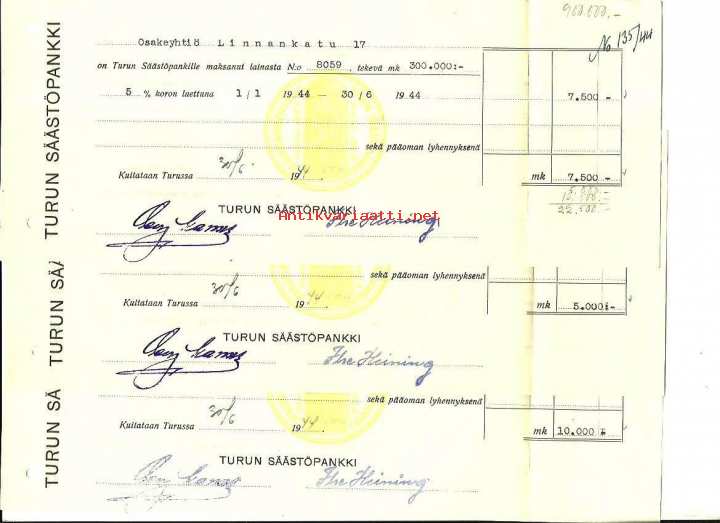 900.000.-
No 135/44
TURUN SÄÄSTÖPANKKI
Osakeyhtiö Linnankatu 17
on Turun Säästöpankille maksanut lainasta N:o 8059, tekevä mk 300.000:-
5 % koron luettuna 1/1 1944 — 30/6 1944 7.500 -
sekä pääoman lyhennyksenä
Kuitataan Turussa 30/6 1944 mk 7.500 -
5.000.-
10.000.-
22.500.-
TURUN SÄÄSTÖPANKKI
Antikvariaatti.net
TURUN SÄÄ
sekä pääoman lyhennyksenä
Kuitataan Turussa 30/6 1944 mk 5.000:-
TURUN SÄÄSTÖPANKKI
TURUN SÄ
sekä pääoman lyhennyksenä
Kuitataan Turussa 30/6 1944 mk 10.000:-
TURUN SÄÄSTÖPANKKI